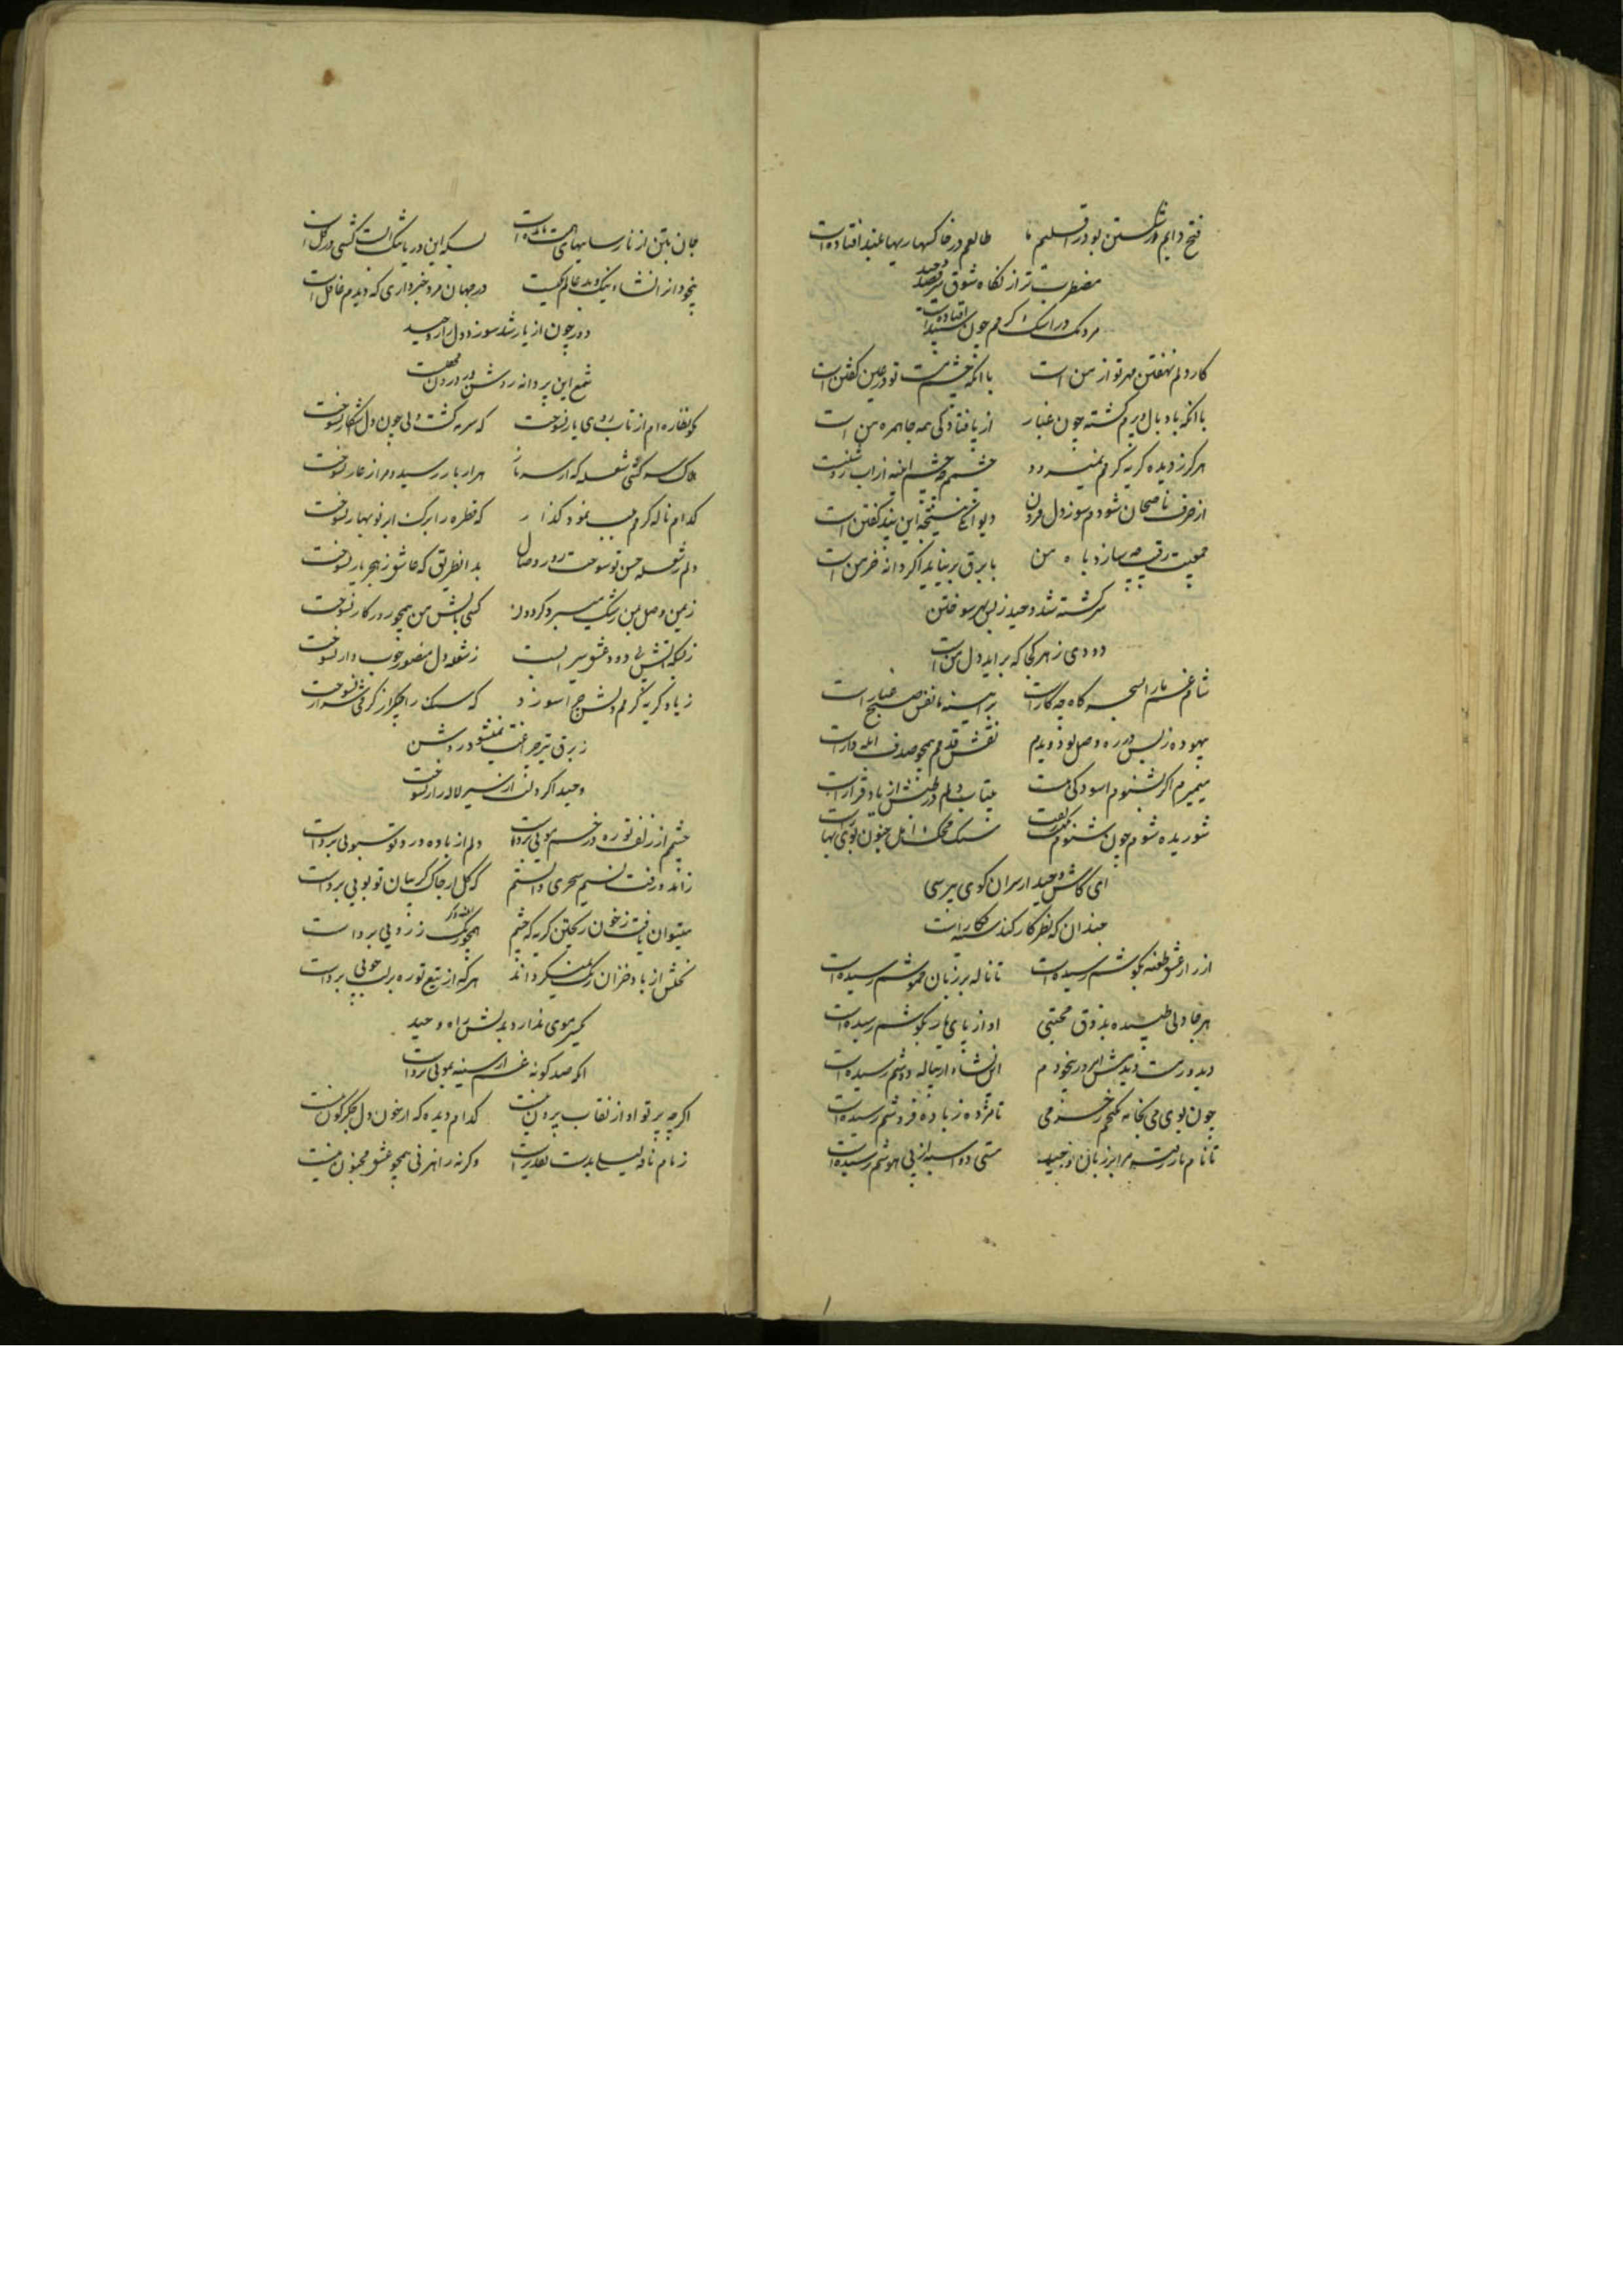 فتح دایم در شکستن بود در اقلیم ما طالعم در خاکساریها بلند افتاده است
مضطرب تر از نگاه شوق میرقصد وحید
مردمک در اشک گرمم چون سپند افتاده است
کار دلم نهفتن مهر تو از من است با آنکه خشم تو در عین گفتن است
با آنکه باد بال و پرم گشته چون غبار از پا فتادگی همه جا همره من است
هرگز ز دیده گریه گرمم نمیرود چشمم چو چشم آینه از آب روشنست
از حرف ناصحان شودم سوز دل فزون دیوانگی نتیجه این پند گفتن است
جمعیت رقیب چه سازد باه من با برق بر نیاید اگر دانه خرمن است
سرگشته شد وحید ز بس بهر سوختن
دودی ز هر کجا که برآید دل من است
شام غم ما را بسحرگاه چه کار است بر آینه ما نفس صبح غبار است
بیهوده ز بس در ره وصل تو دویدم نقش قدمم همچو صدف آبله دار است
میمیرم اگر بشنوم آسودگی هست بیتاب دلم در طپش از یاد قرار است
شوریده شوم چون شنوم
ای کاش وحید از سر آن کوی بپرسی
چندان که نظر کار کند
از راز عشق طعنه بگوشم رسیده است تا ناله بر زبان خموشم رسیده است
هر جا دلی طپیده بذوق محبتی آواز پای یار بگوشم رسیده است
دیدورست دیدمش امروز بیخودم این نشاء از پیاله دوشم رسیده است
چون بوی می بخانه نگنجم ز خرمی تا مژده ز باده فروشم رسیده است
تا نام یار رفت مرا بر زبان وحید مستی دو اسبه از پی هوشم رسیده است
جان بتن از نارسایهای همت مانده است بسکه این دریا تنک است کشتی در گل است
بیخود از انشاء نیک و بد عالم یکیست در جهان مرد خبرداری که دیدم غافل است
دور چون از یار شد سوزد دل زار وحید
شمع این پروانه روشن در درون محفلست
کو نظاره ام از تاب روی یار نسوخت که سرمه گشت ولی چون دل فکار نسوخت
هلاک سرکشی شعله که از سر ناز هزار بار رسید و مرا ز عار نسوخت
کدام ناله گرمم بشب نمود گذار که قطره را بر رگ ابر نوبهار نسوخت
دلم ز شعله حسن تو سوخت روز وصال بدانطریق که عاشق ز هجر یار نسوخت
زمین وصل بمن رشک میبرد گردون کسی بآتش من همچو روزگار نسوخت
ز بسکه آتش بی دود عشق سیرابست ز شعله دل منصور چوب دار نسوخت
ز یاد گریه گرمم دلش چرا سوزد که سنگ را جگر از گرمی شرار نسوخت
ز برق تیز چراغت نمیشود روشن
وحید اگر دلت از سیر لاله زار نسوخت
چشمم از زلف تو ره در خم مویی بردست دلم از باده درد تو سبویی بردست
زاند و رفت نسیم سحری دانستم که گل از چاک گریبان تو بویی بردست
میتوان یافت ز خون ریختن گریه که چشم همچو رنگ ز رویی بردست
نخلش از باد خزان رنگ نمیگرداند هر که از تیغ تو ره بر لب جویی بردست
یکسر موی ندارد بدلش راه وحید
آنکه صد گونه غم از سینه بمویی بردست
اگر چه پرتو او از نقاب بیرون نیست کدام دیده که از خون دل جگرگون نیست
زمام ناقه لیلی بدست تقدیر است وگرنه راهزنی همچو عشق مجنون نیست